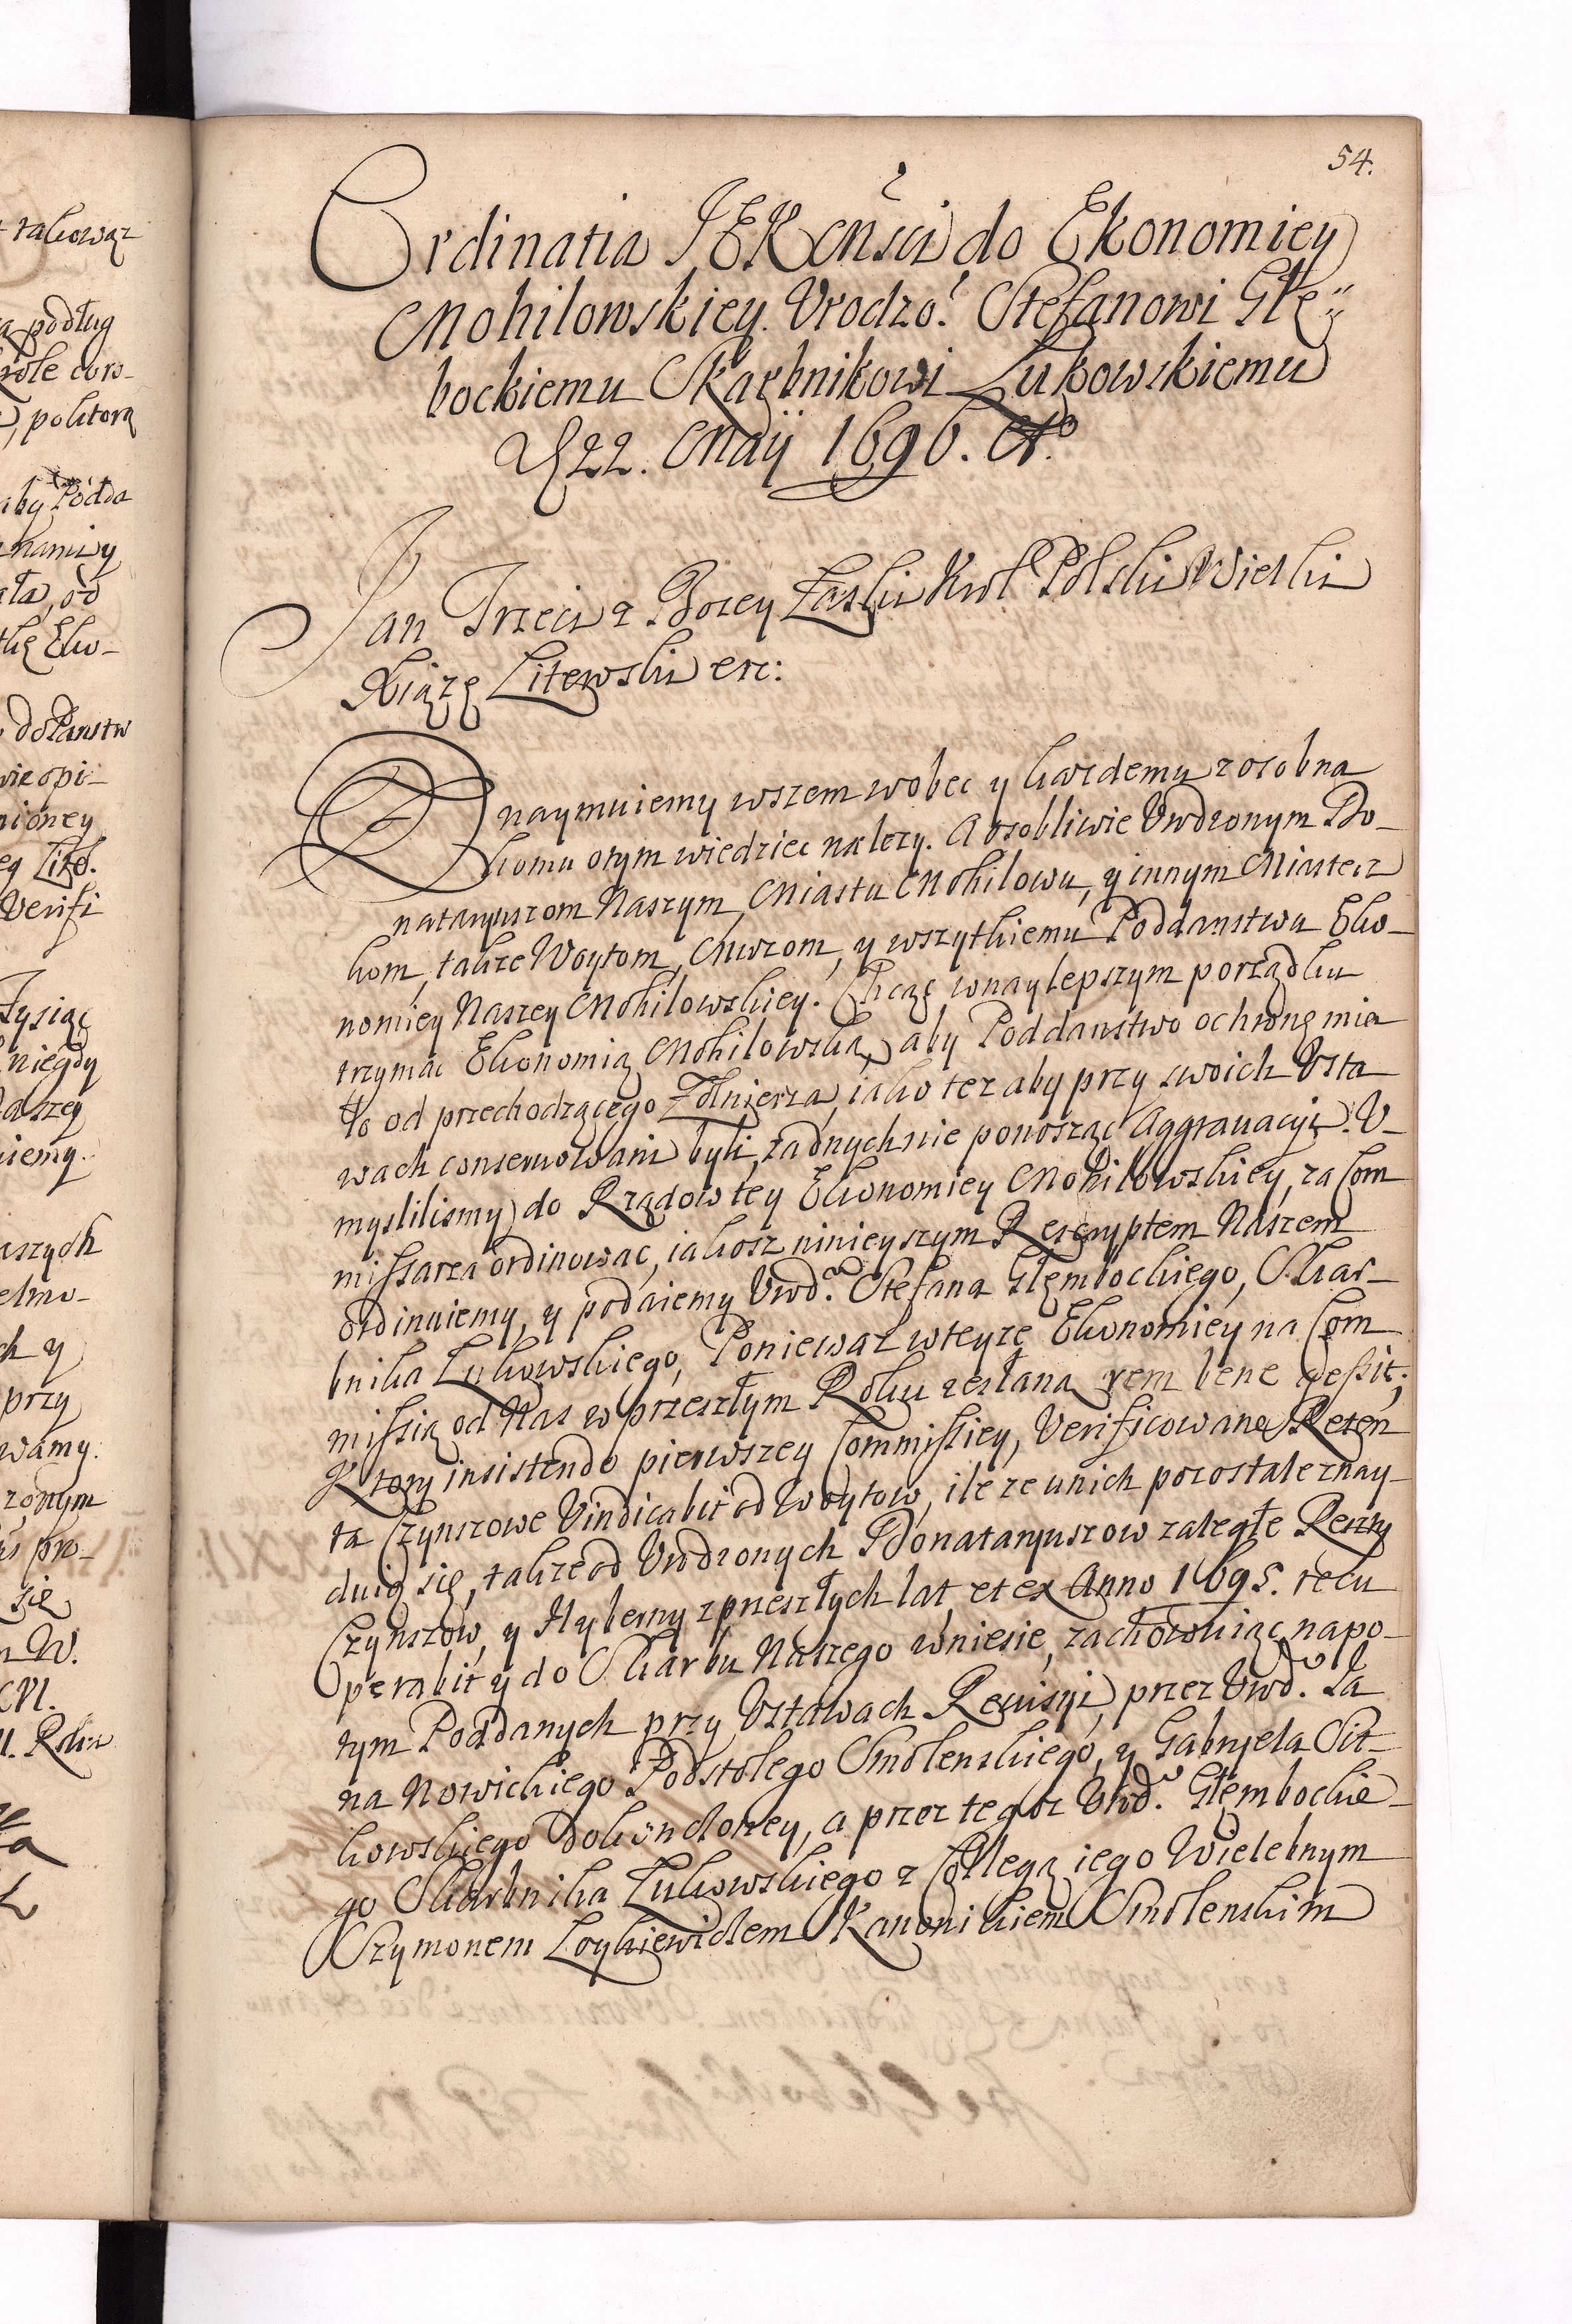 54.
Ordinatia JEKMści do Ekonomiey
Mohilowskiey. Vrodzo: Stefanowi Głę=
bockiemu Skarbnikowi Łukowskiemu
D 22. Maij 1696. Ao
Jan Trzeci z Bozey Łaski Krol Polski Wielki
Xiąze Litewski etc:
Oznaymuiemy wszem wobec y kazdemu z osobna
komu otym wiedziec nalezy. A osobliwie Vrodzonym Do-
nataryuszom Naszym, Miastu Mohilowu, y innym Miastecz
kom, takze Woytom, Murzom, y wszytkiemu Poddanstwu Eko-
nomiey Naszey Mohilowskiey. Chcąc wnaylepszym porządku
trzymac Ekonomią Mohilowską, aby Poddanstwo ochronę mia
ło od przechodzącego Zołnierza, iako tez aby przy swoich Vsta
wach conserwowani byli, zadnych nie ponosząc Aggrauacyi. V-
myslilismy do Rządow tey Ekonomiey Mohilowskiey, za Com
missarza ordinowac, iakosz ninieyszym Rescryptem Naszem
ordinuiemy, y podaiemy Vrod: Stefana Głembockiego, Skar-
bnika Łukowskiego, Poniewaz wteyze Ekonomiey na Com
missią od Nas w przeszłym Roku zesłaną rem bene gessit;
Ktory insistendo pierwszey Commissiey, Verificowane Reten
ta Czynszowe Vindicabit od Woytow, ile ze unich pozostałe znay-
duią się, takze od Vrodzonych Donataryuszow zaległe Reszty
Czynszow, y Hyberny z przeszłych lat, et ex Anno 1695. recu
perabit y do Skarbu Naszego wniesie, zachowuiąc napo-
tym Poddanych przy Vstawach Rewisyi, przez Vrod: Ja
na Nowickiego Podstolego Smolenskiego, y Gabryela Sit-
kowskiego dokonczoney, a przez tegoz Vrod: Głembockie-
go Skarbnika Łukowskiego z Collegą iego Wielebnym
Szymonem Loykiewiczem Kanonikiem Smolenskim